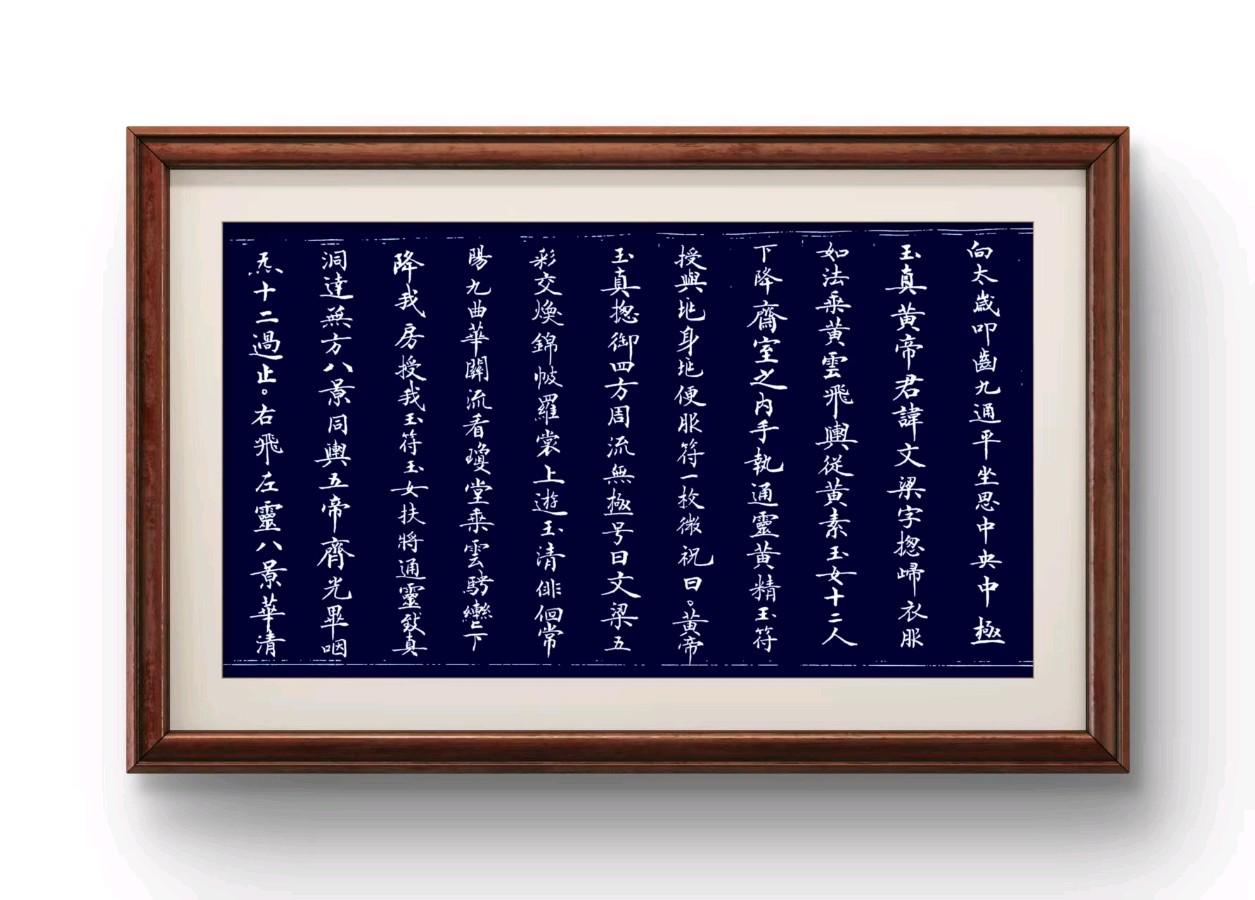 向太歲叩齒九通平坐思中央中極
玉真黃帝君諱文梁字揔歸衣服
如法乘黃雲飛輿從黃素玉女十二人
下降齋室之內手執通靈黃精玉符
授與地身地便服符一枚微祝曰。黃帝
玉真揔御四方周流無極号曰文梁五
彩交煥錦帔羅裳上遊玉清俳佪常
陽九曲華關流看瓊堂乘雲騁轡下
降我房授我玉符玉女扶將通靈致真
洞達無方八景同輿五帝齊光畢咽
炁十二過止。右飛左靈八景華清